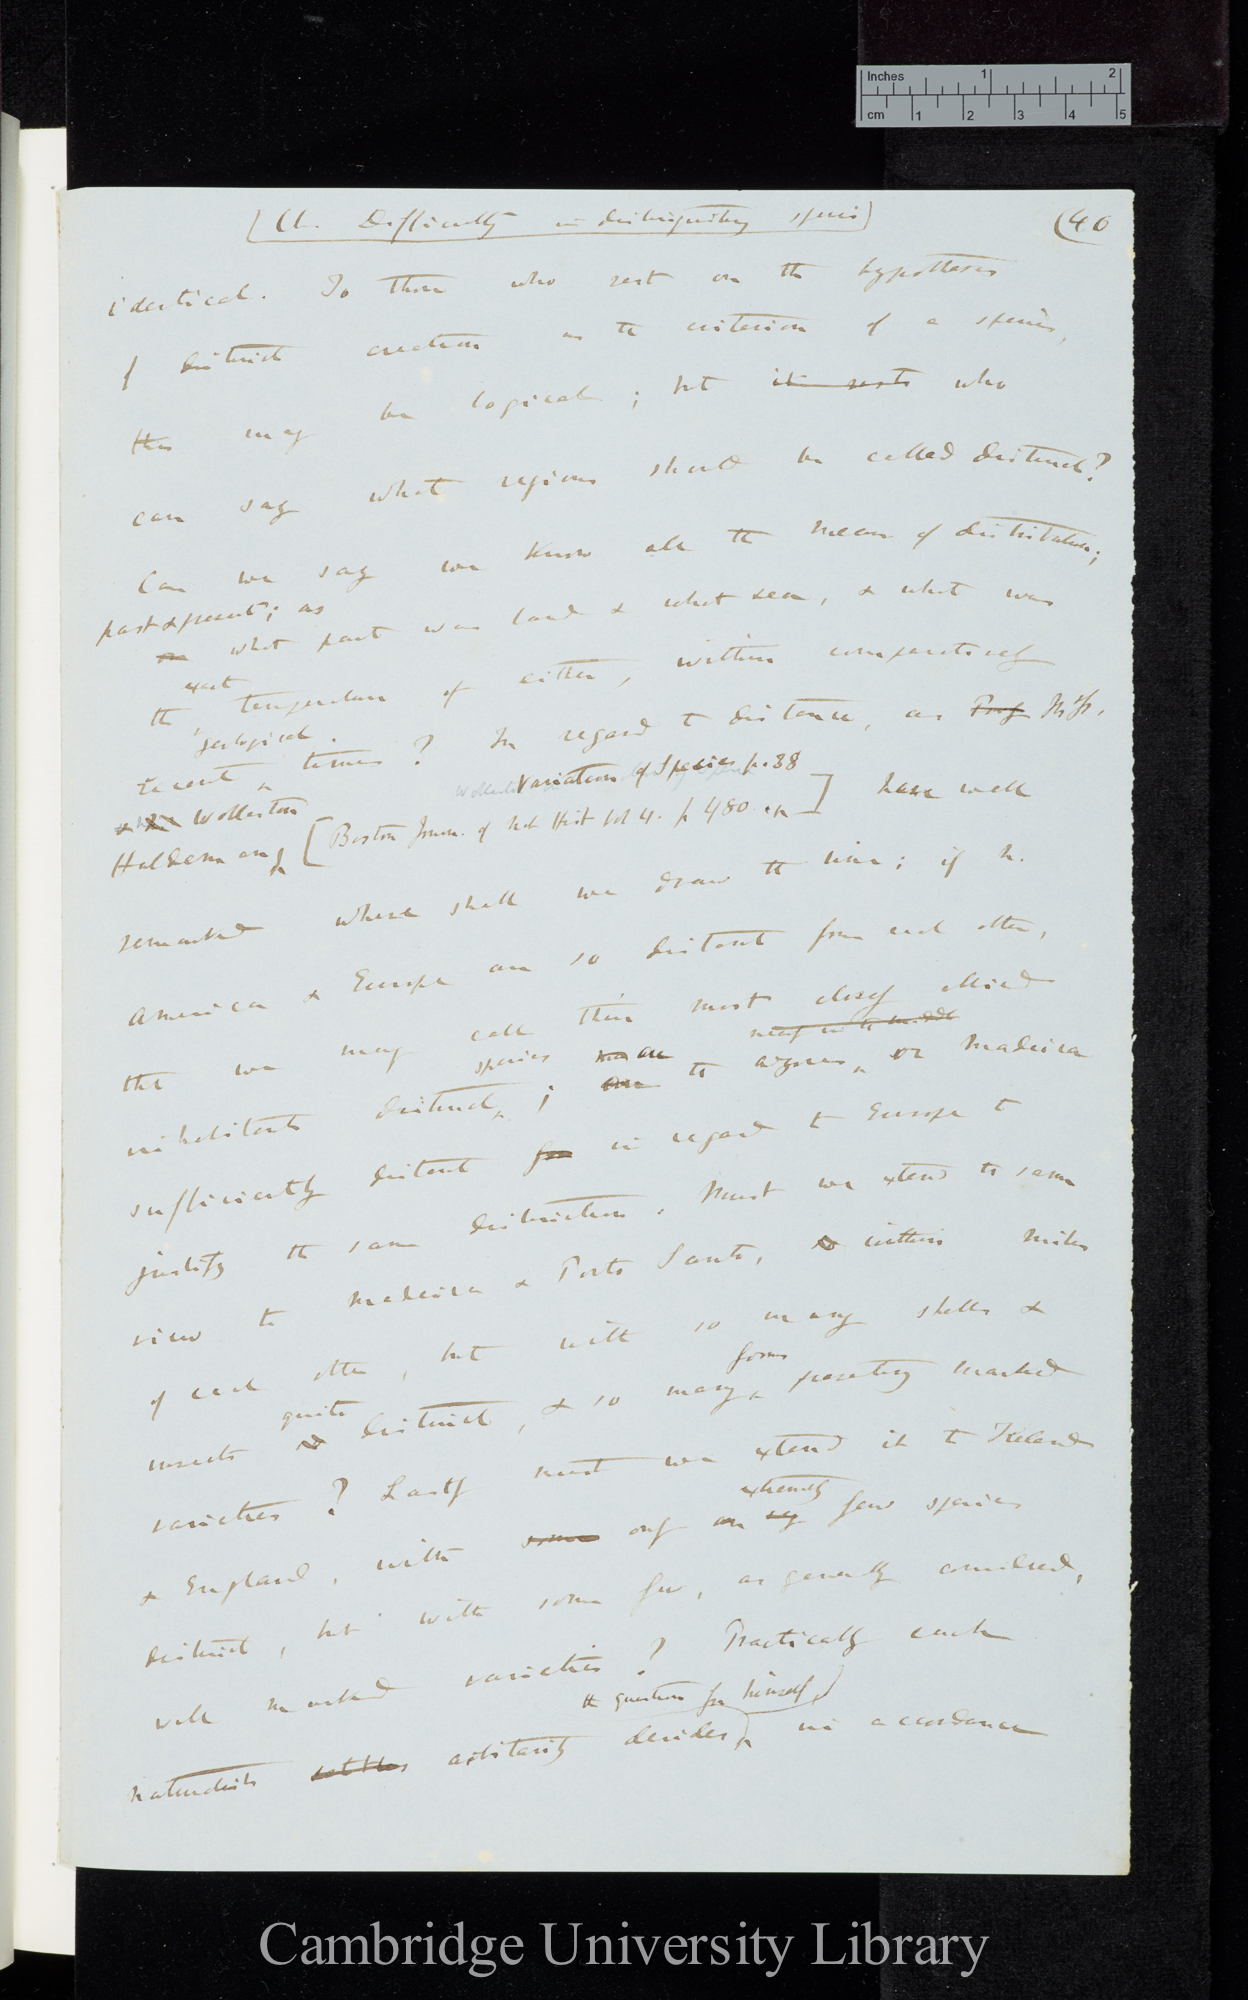 Inches 1 2
cm 1 2 3 4 5
[Ch. Difficulty in distinguishing species]
(40
identical. To those who rest on the hypothesis
of distinct creation as the criterion of a species,
this may be logical; but who
can say what regions should be called distinct?
Can we say we know all the means of distribution;
past & present; as
what part was land & what sea, & what was
exact
the temperature of either, within comparatively
geological
recent times? In regard to distance, as Prof Mssrs.
Variation of Species p. 38
& Wollaston
Haldeman [Boston Journ. of Nat Hist vol 4. p 480. ] have well
remarked where shall we draw the line; if N.
America & Europe are so distant from each other,
that we may call their most closely allied
species are
inhabitants distinct; are the Azores, or Madeira
sufficiently distant for in regard to Europe to
justify the same distinction. Must we extend the same
view to Madeira & Porto Santo, within miles
of each other, but with so many shells &
quite forms
insects distinct, & so many presenting marked
varieties? Lastly must we extend it to Ireland
extremely
& England, with some only an very few species
distinct, but with some few, as generally considered,
well marked varieties? Practically each
the question for himself)
naturalist settles arbitrarily decides in accordance
Cambridge University Library